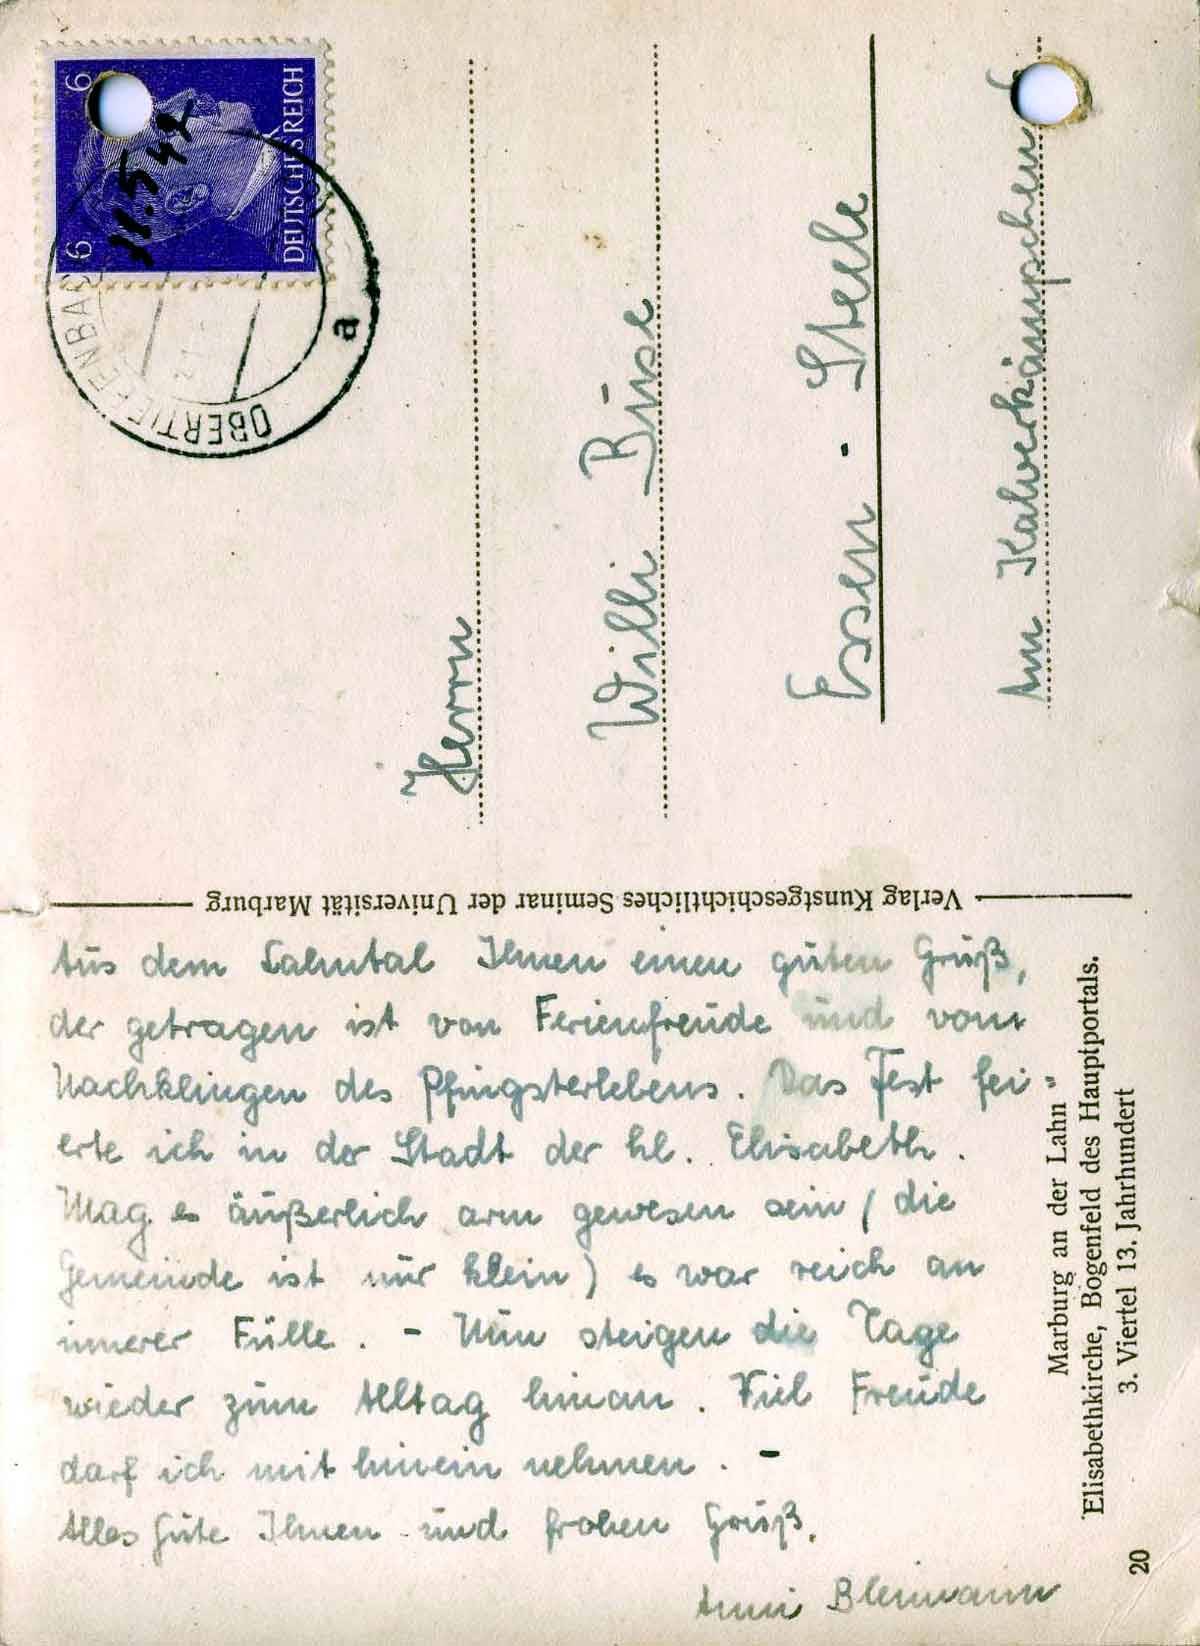 6
6
DEUTSCHES REICH
31.5.42
OBERTIEFENBACH
a
Herrn
Willi Büse
Essen - Steele
Am Kalverkämpchen
Verlag Kunstgeschichtliches Seminar der Universität Marburg
Aus dem Lahntal Ihnen einen guten Gruß,
der getragen ist von Ferienfreude und vom
Nachklingen des Pfingsterlebens. Das Fest fei=
erte ich in der Stadt der hl. Elisabeth.
Mag es äußerlich arm gewesen sein (die
Gemeinde ist nur klein) es war reich an
innerer Fülle. - Nun steigen die Tage
wieder zum Alltag hinan. Viel Freude
darf ich mit hinein nehmen. -
Alles Gute Ihnen und frohen Gruß,
Anni Blenmann
Marburg an der Lahn
Elisabethkirche, Bogenfeld des Hauptportals.
3. Viertel 13. Jahrhundert
20